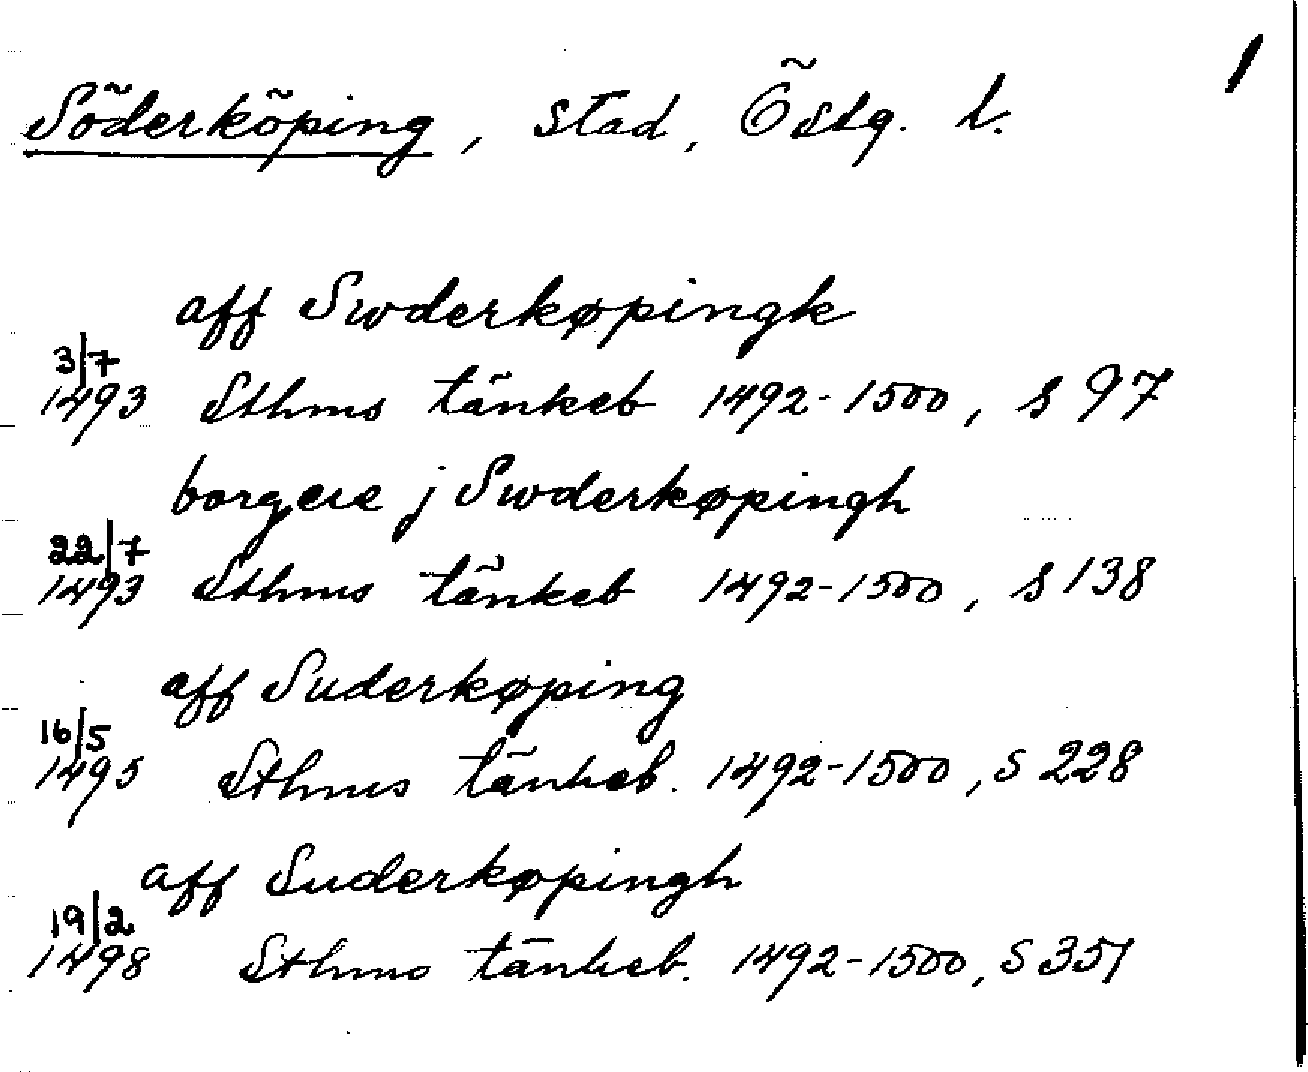 1
Söderköping, stad, Östg. l.
aff Swderkøpingk
3/7
1493 Sthms tänkeb 1492-1500, s 97
borgere j Swderkøpingh
22/7
1493 Sthms tänkeb 1492-1500, s 138
aff Suderkøping
16/5
1495 Sthms tänkeb. 1492-1500, s 228
aff Suderkøpingh
19/2
1498 Sthms tänkeb. 1492-1500, s 351